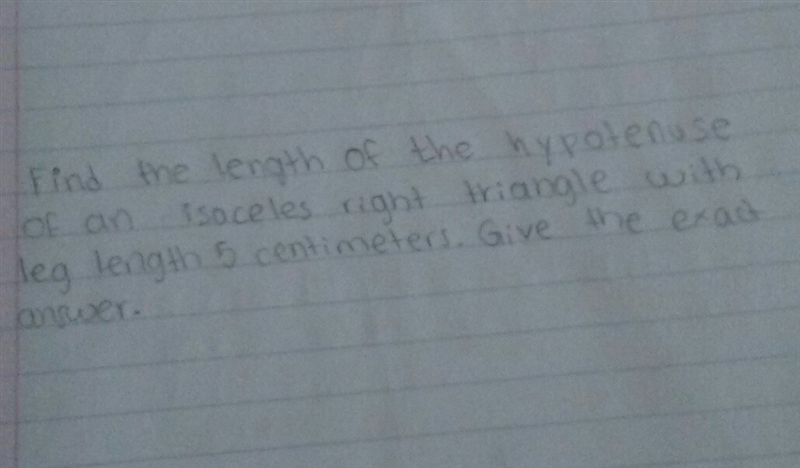 Find the length of the hypotenuse
of an isoceles right triangle with
leg length 5 centimeters. Give the exact
answer.